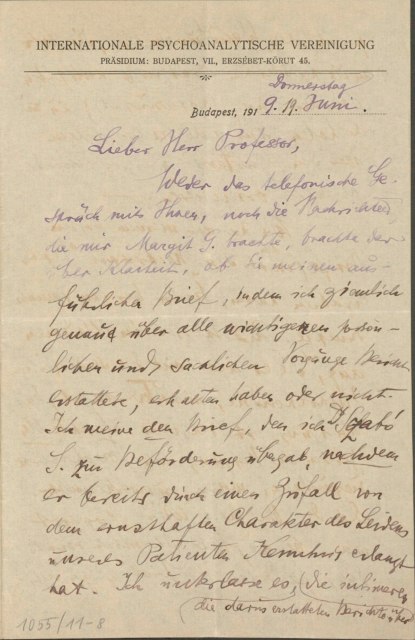 INTERNATIONALE PSYCHOANALYTISCHE VEREINIGUNG
PRÄSIDIUM: BUDAPEST, VII., ERZSÉBET-KÖRUT 45.
Donnerstag
Budapest, 191 9. 19. Juni.
Lieber Herr Professor,
Weder das telefonische Ge-
spräch mit Ihnen, noch die Nachrichten
die mir Margit G. brachte, brachte
Klarheit, ob Sie meinen aus-
führlichen Brief, indem ich ziemlich
genau über alle wichtigeren persön-
lichen und sachlichen Vorgänge Bericht
erstattete, erhalten haben oder nicht.
Ich meine den Brief, den ich Dr Szabó
S. zur Beförderung übergab, nachdem
er bereits durch einen Zufall von
dem ernsthaften Charakter des Leidens
unseres Patienten Kenntnis erlangt
hat. Ich unterlasse es, die intimeren
die darin erstatteten Berichte über
1055/11-8